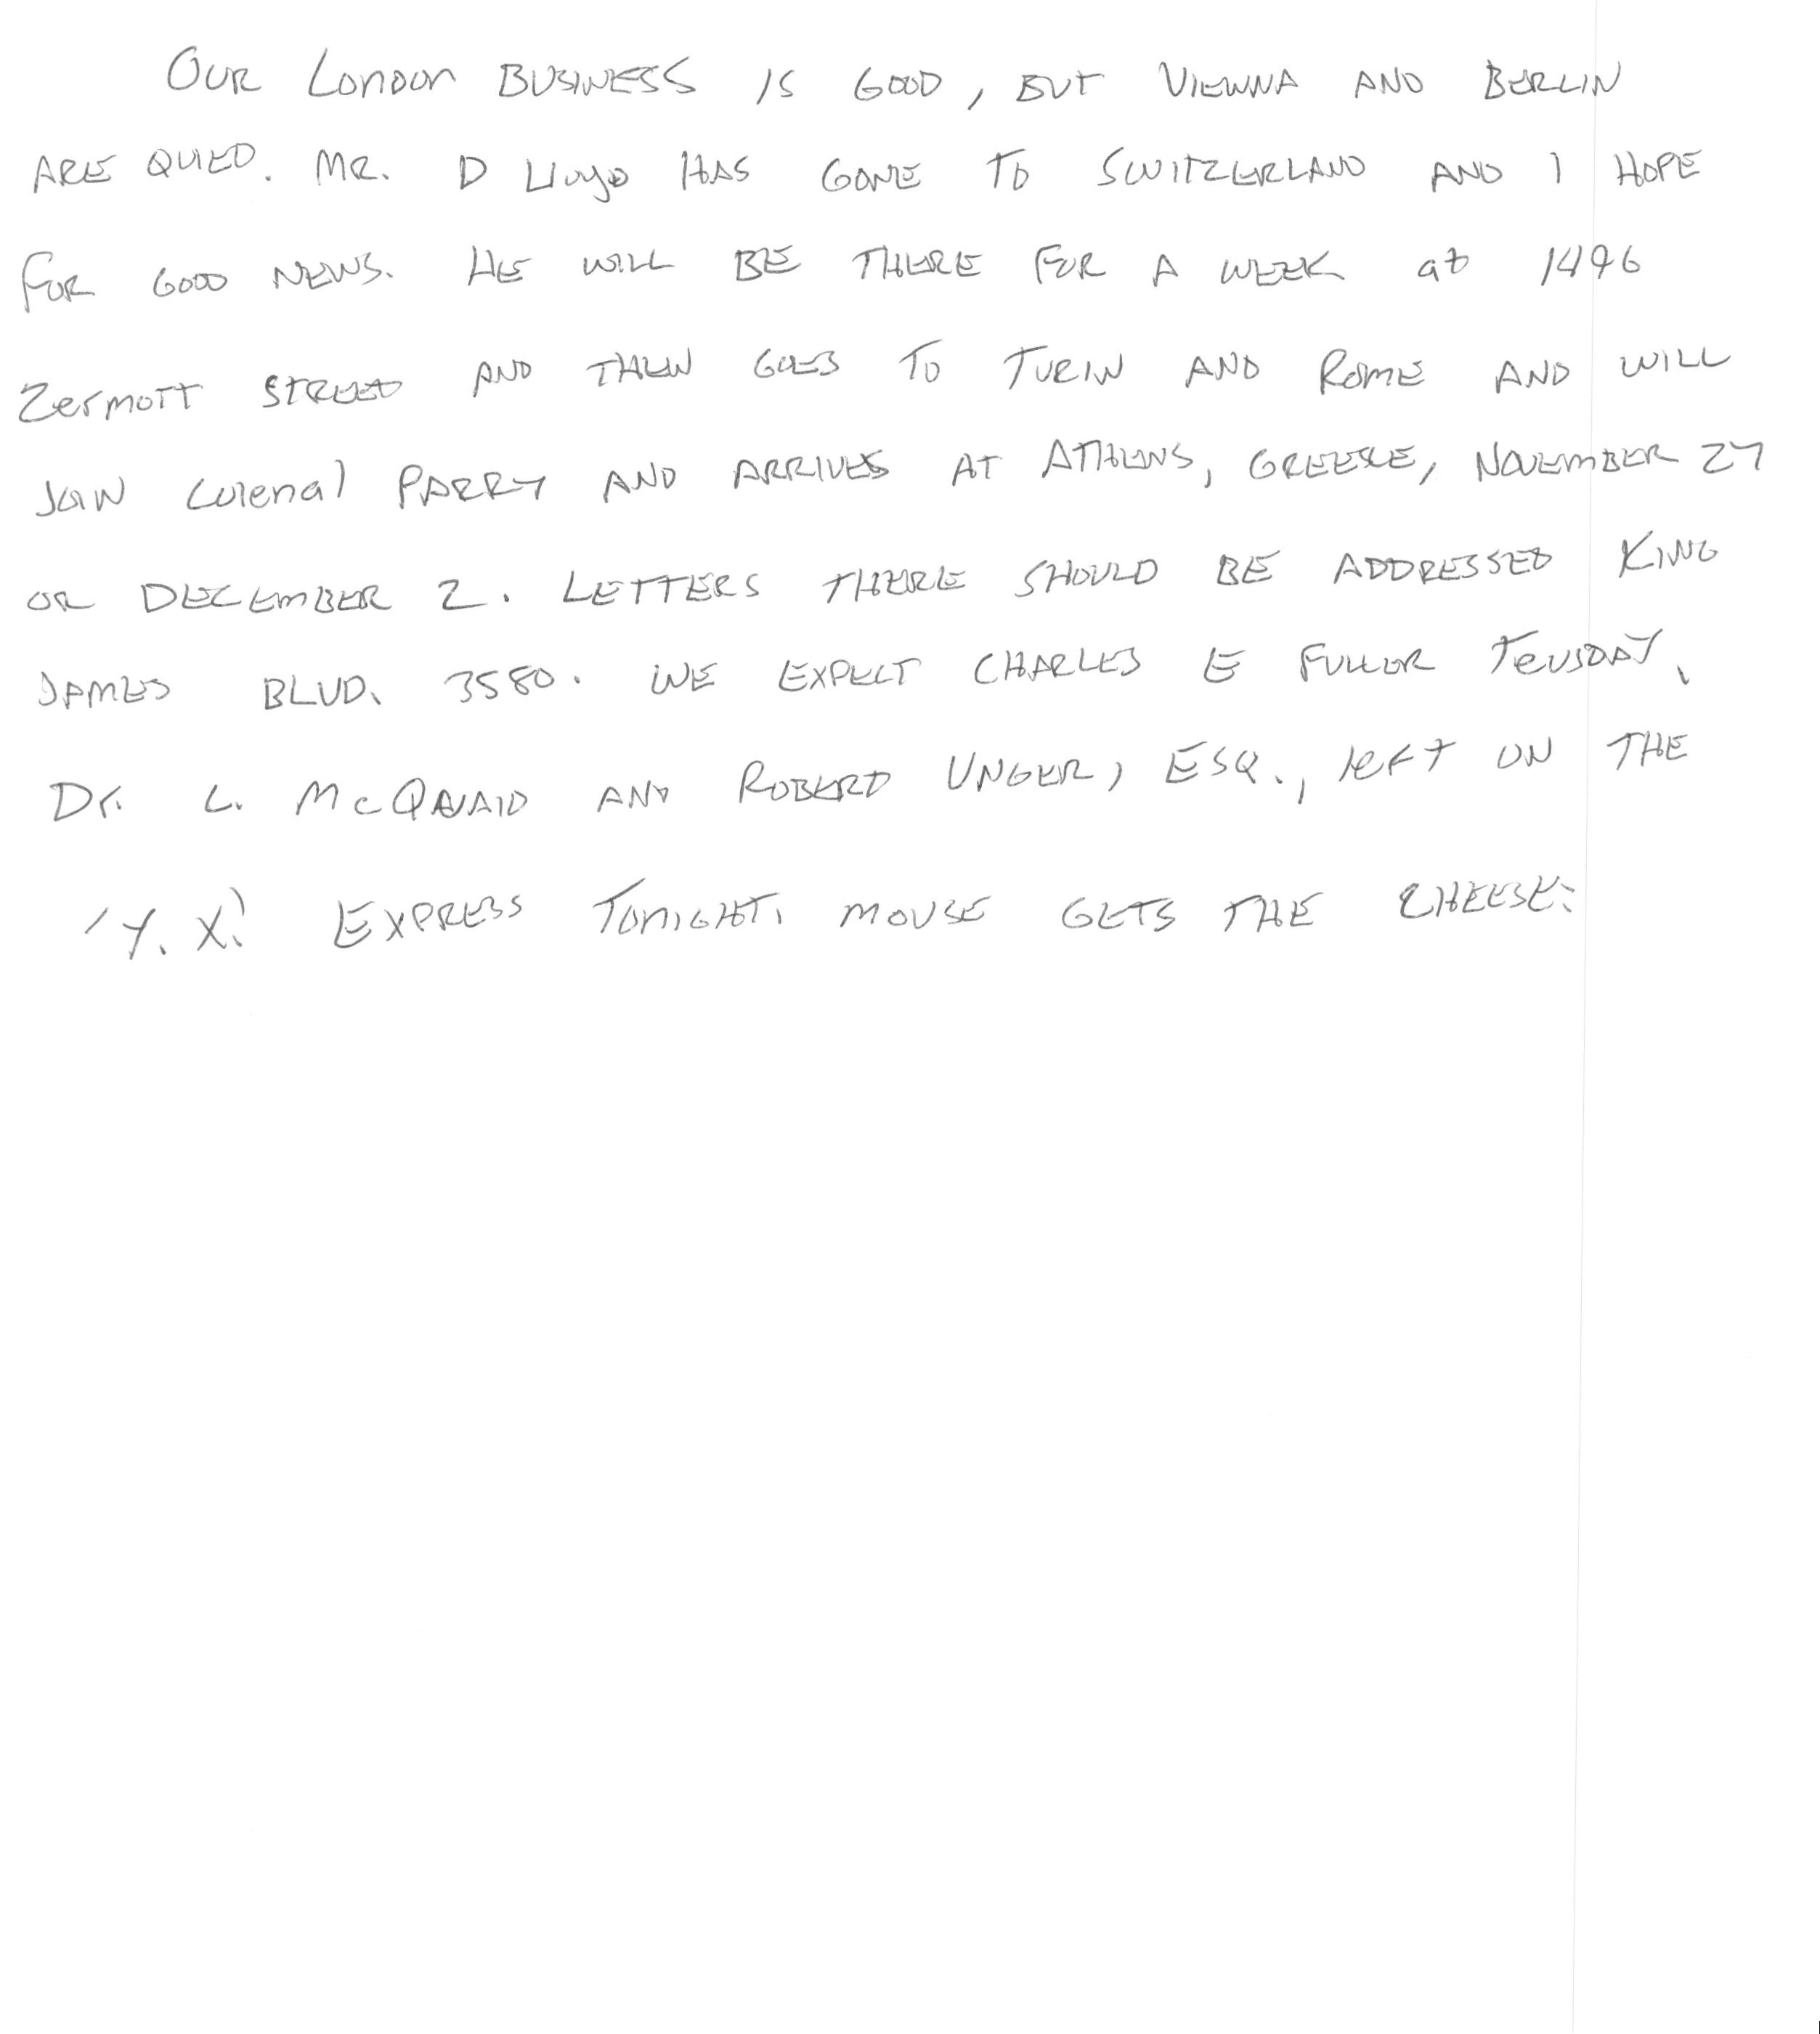 OUR LONDON BUSINESS IS GOOD, BUT VIENNA AND BERLIN
ARE QUIED. MR. D LLOYD HAS GONE TO SWITZERLAND AND I HOPE
FOR GOOD NEWS. HE WILL BE THERE FOR A WEEK at 1496
Zermott STREET AND THEN GOES TO TURIN AND ROME AND WILL
JOIN Colenal PARRY AND ARRIVES AT ATHENS, GREECE, NOVEMBER 27
OR DECEMBER 2. LETTERS THERE SHOULD BE ADDRESSED KING
JAMES BLVD. 3580. WE EXPECT CHARLES E FULLER TEUSDAY.
Dr. L. McQUAID AND ROBERD UNGER, ESQ., left ON THE
'Y. X.' EXPRESS TONIGHT. MOUSE GETS THE CHEESE.